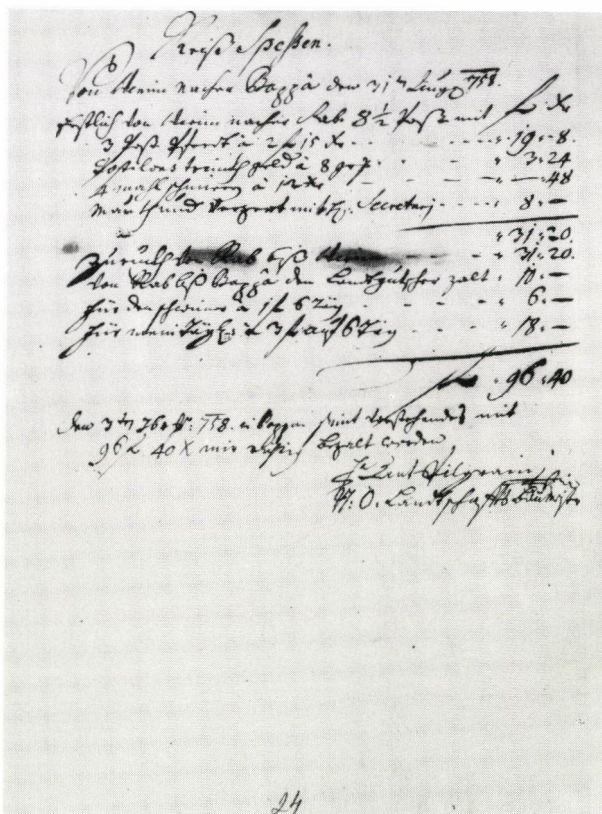 Reiß Speßen.
Von Wienn nacher Bappa den 31ten Aug 758.
Erstlich von Wienn nacher Rab 8½ Post mit f xr
3 Post Pferdt à 2 f 15 xr - - - - " 19 " 8.
Postilons trinckhgeld à 8 - - - " 3 " 24
4 mahl schmiren à 12 xr - - - " — " 48
Mauth und Verzert mit H: Secretari - - - " 8 " —
" 31 " 20.
Zuruckh von Rab biß Wienn - - " 31 " 20.
Von Rab biß Bappa den Landtgutscher zalt " 10 " —
für den à 1 f 6 Täg - - - - " 6. —
für à 3 f auf 6 Täg - - - " 18. —
f " 96 " 40
den 3ten 758. in Bappa seint vorstehendes mit
96 f 40 X mir richtig bezalt worden
Frantz Ant Pilgram
N: O. Landtschaffts Baumeister
24